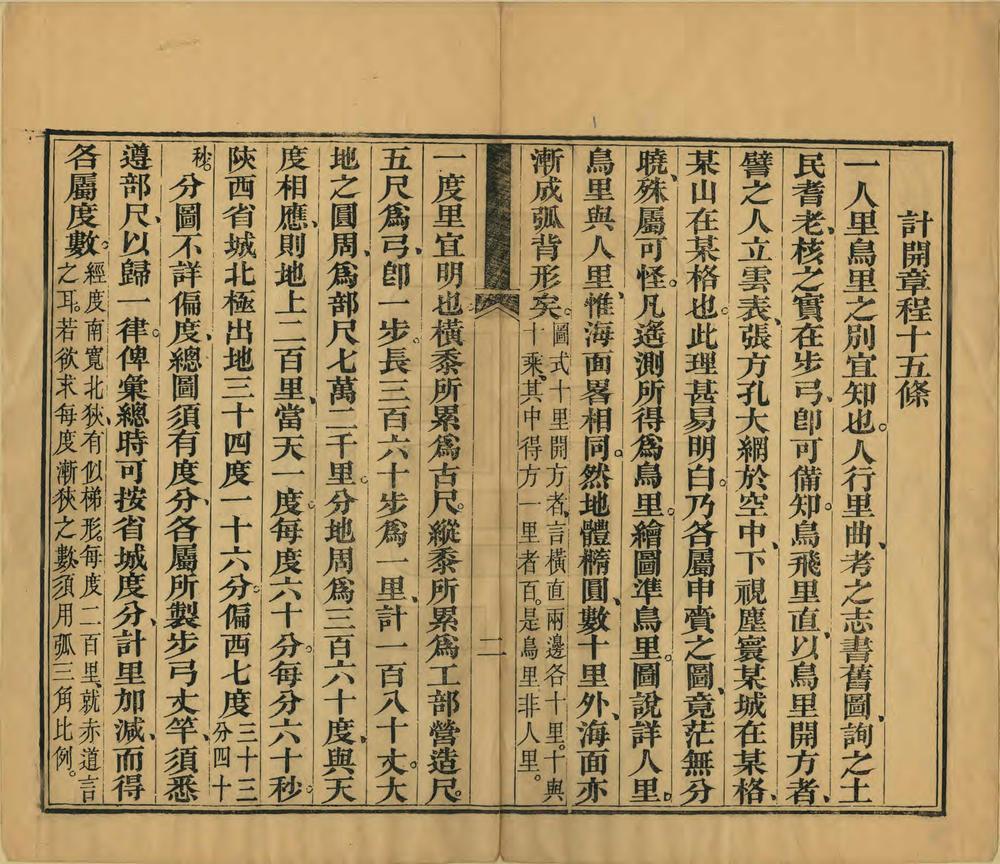 計開章程十五條
一人里鳥里之別宜知也。人行里曲、考之志書舊圖、詢之土
民耆老、核之實在步弓、卽可備知。鳥飛里直、以鳥里開方者、
譬之人立雲表、張方孔大網於空中、下視塵寰、某城在某格、
某山在某格也。此理甚易明白。乃各屬申賷之圖、竟茫無分
曉、殊屬可怪。凡遙測所得爲鳥里。繪圖準鳥里。圖說詳人里。
鳥里與人里、惟海面畧相同。然地體橢圓、數十里外、海面亦
漸成弧背形矣。圖式十里開方者、言橫直兩邊各十里。十與
十乘、其中得方一里者百。是鳥里非人里。
二
一度里宜明也。橫黍所累爲古尺。縱黍所累爲工部營造尺。
五尺爲弓、卽一步。長三百六十步爲一里、計一百八十丈。大
地之圓周、爲部尺七萬二千里。分地周爲三百六十度、與天
度相應、則地上二百里、當天一度。每度六十分。每分六十秒。
陝西省城北極出地三十四度一十六分。偏西七度三十三
分四十
秒。分圖不詳偏度、總圖須有度分、各屬所製步弓丈竿、須悉
遵部尺、以歸一律。俾彙總時可按省城度分、計里加減、而得
各屬度數。經度南寬北狹、有似梯形。每度二百里、就赤道言
之耳。若欲求每度漸狹之數、須用弧三角比例。